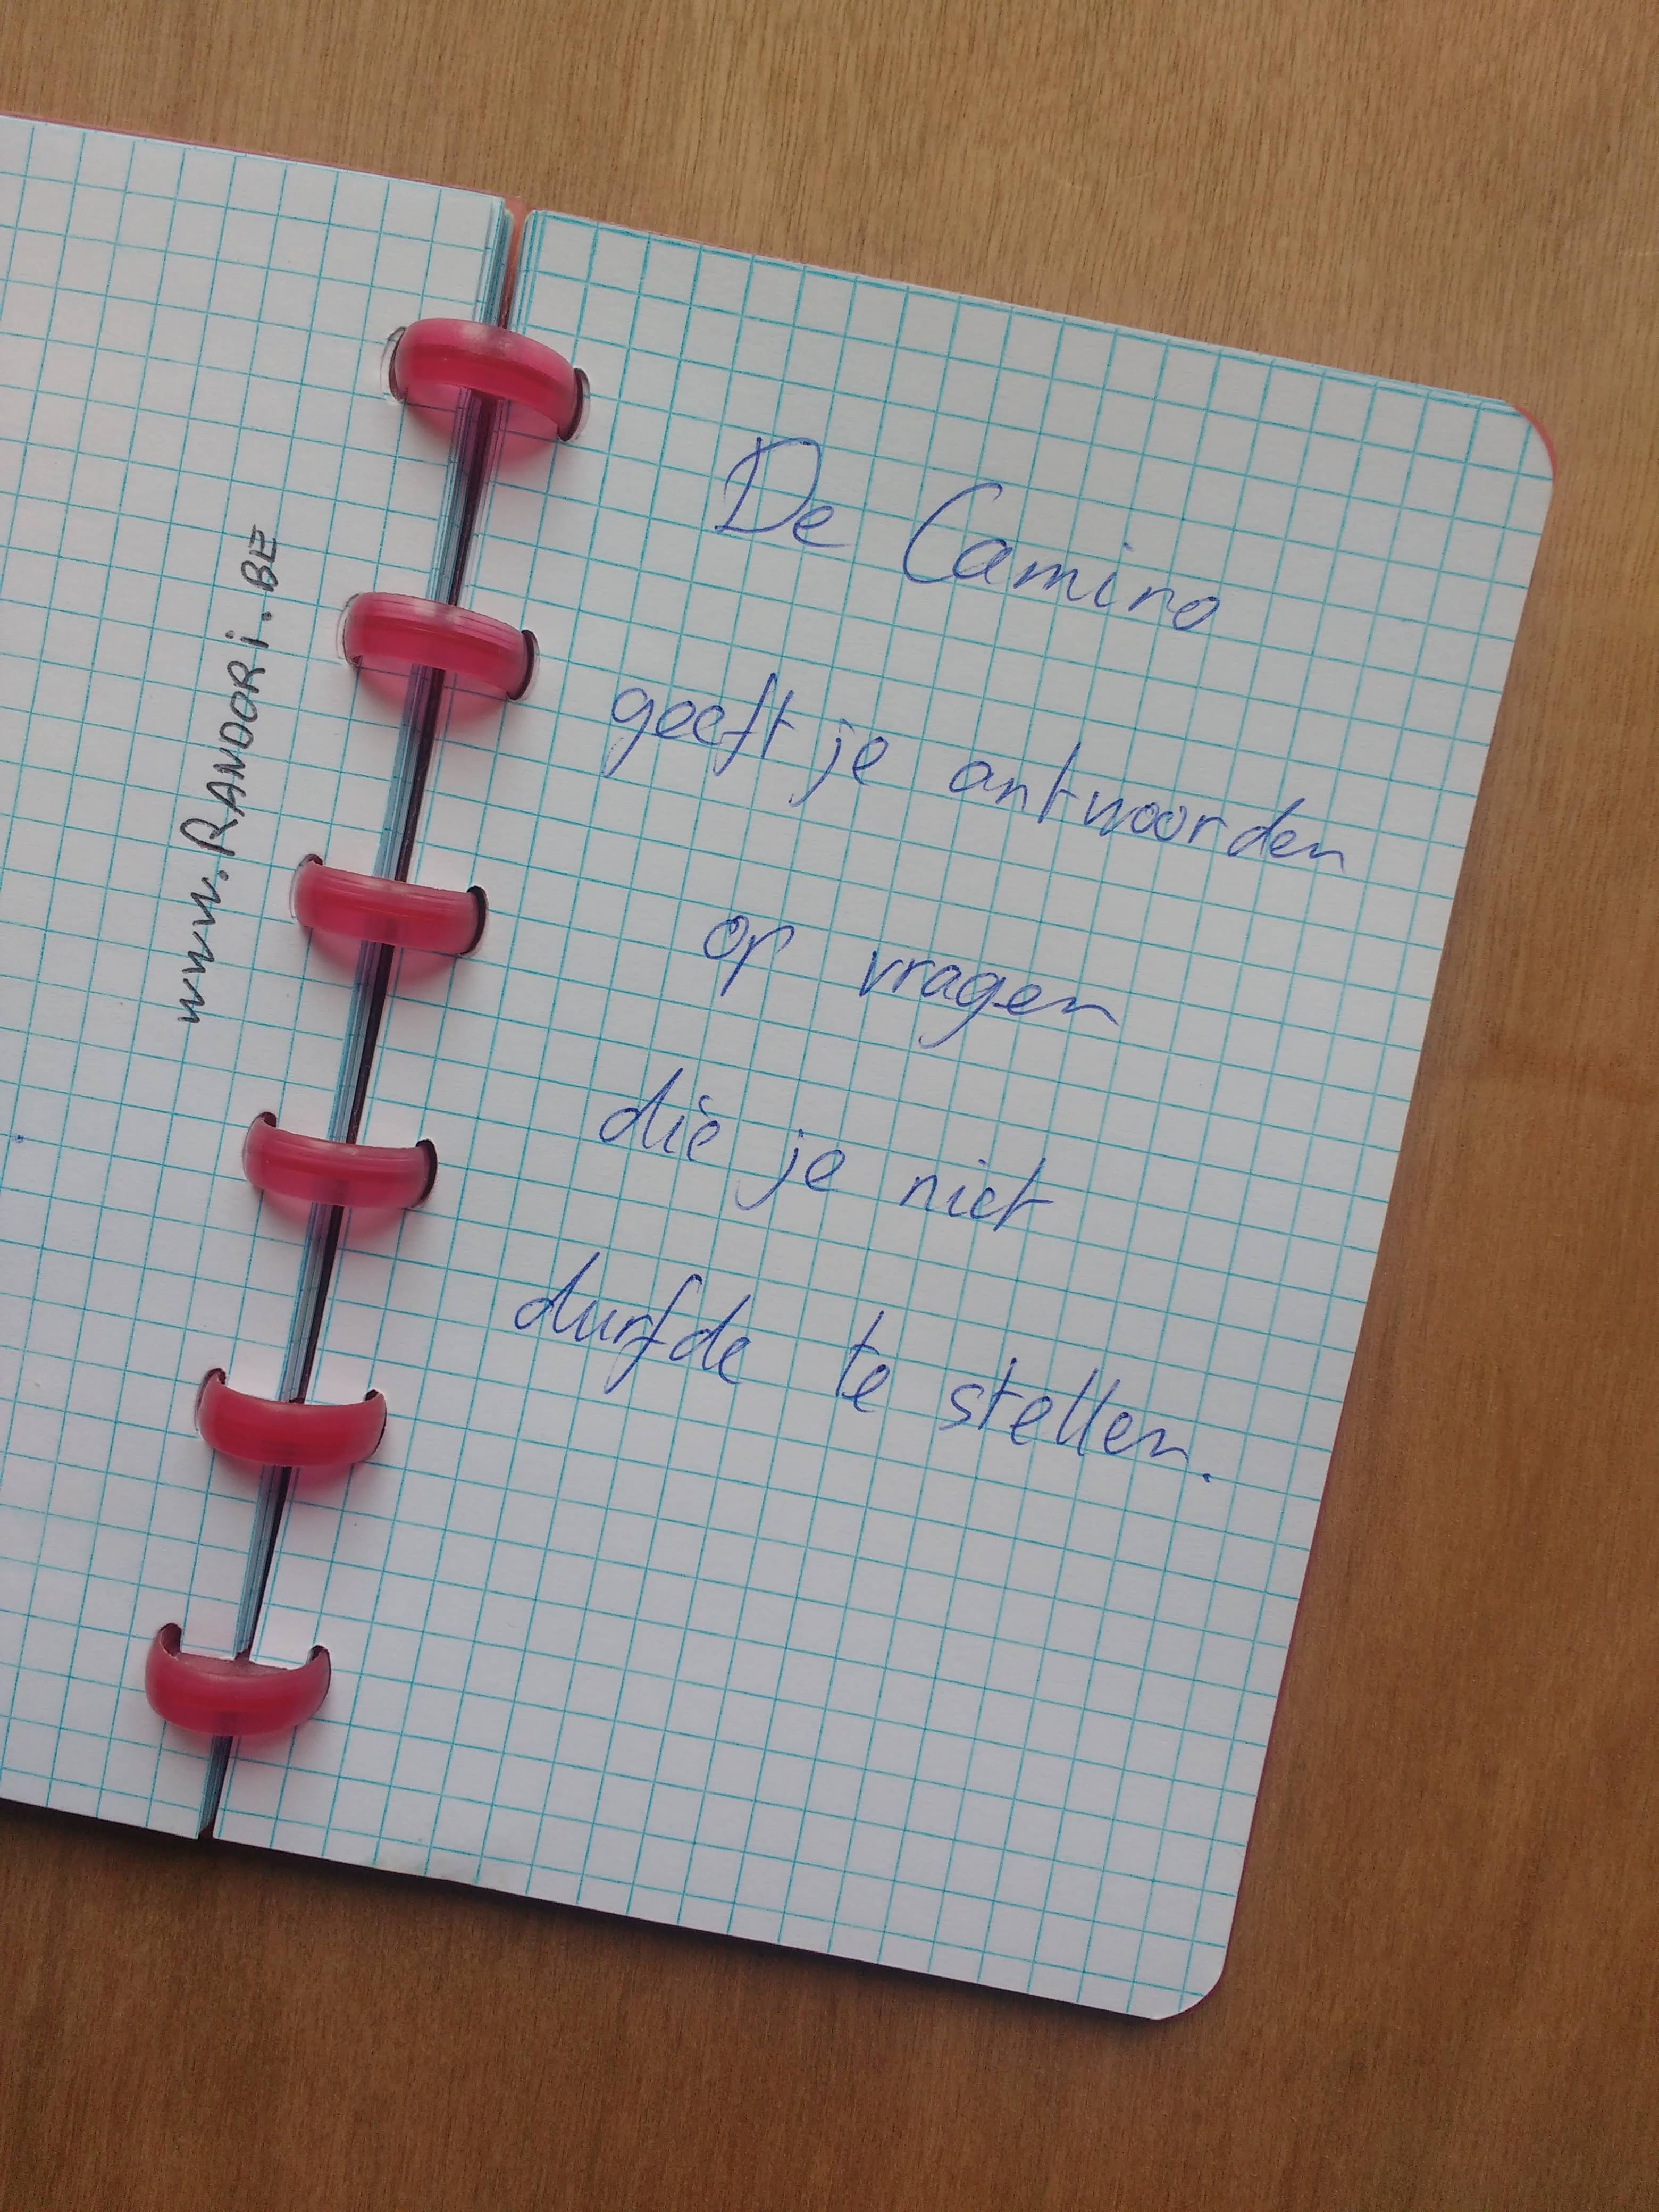 www.RANDORi.BE
De Camino
geeft je antwoorden
op vragen
die je niet
durfde te stellen.